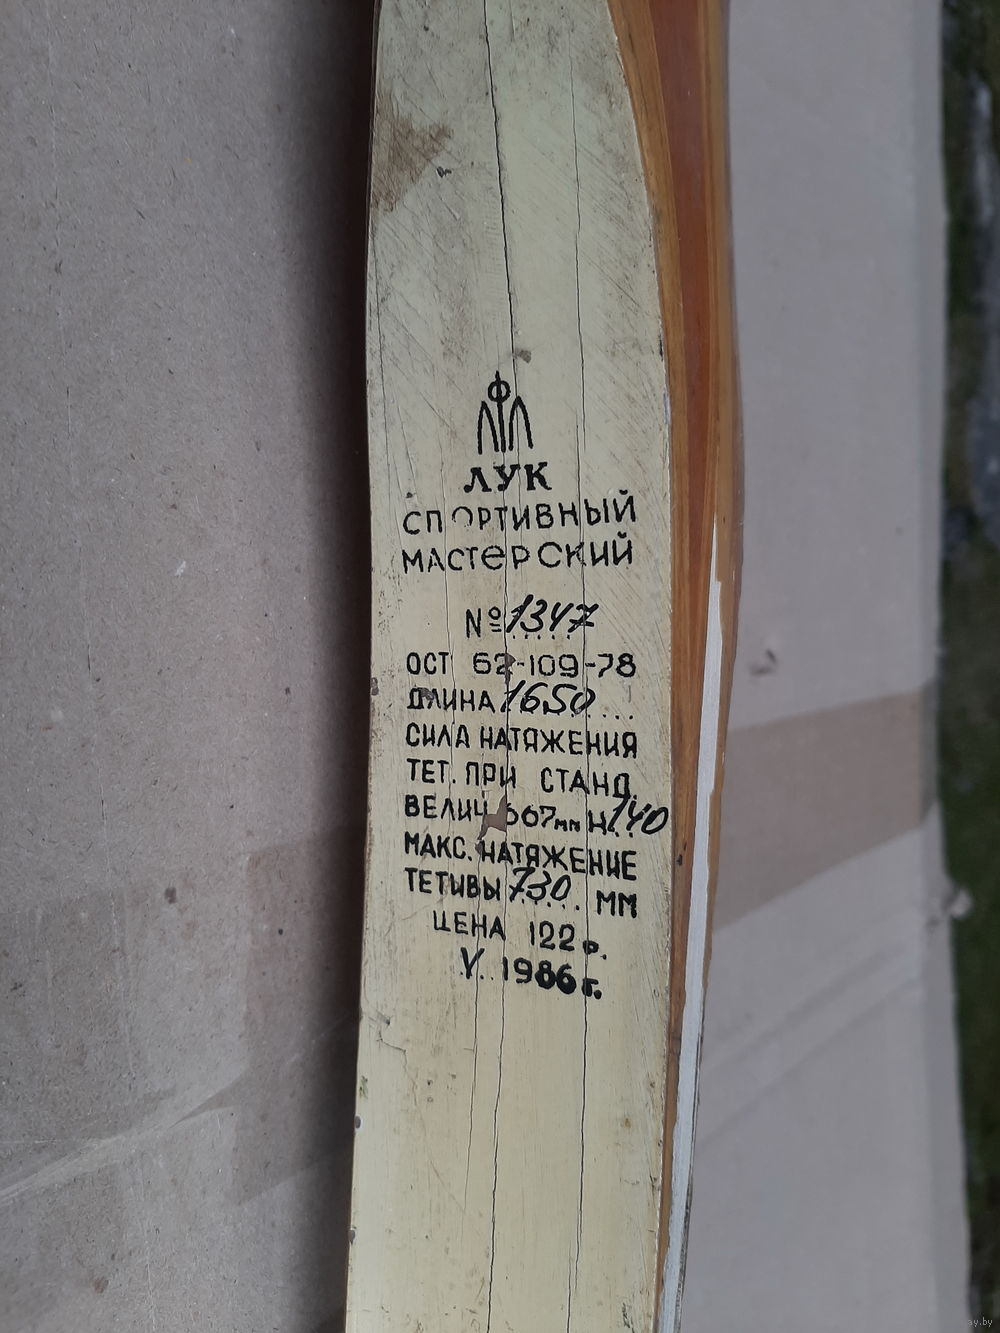 ЛУК
СПОРТИВНЫЙ
МАСТЕРСКИЙ
№ 1347
ОСТ 62-109-78
ДЛИНА 1650
СИЛА НАТЯЖЕНИЯ
ТЕТ. ПРИ СТАНД.
ВЕЛИЧ 667мм Н 140
МАКС. НАТЯЖЕНИЕ
ТЕТИВЫ 730 ММ
ЦЕНА 122 р.
V. 1986 г.
ay.by